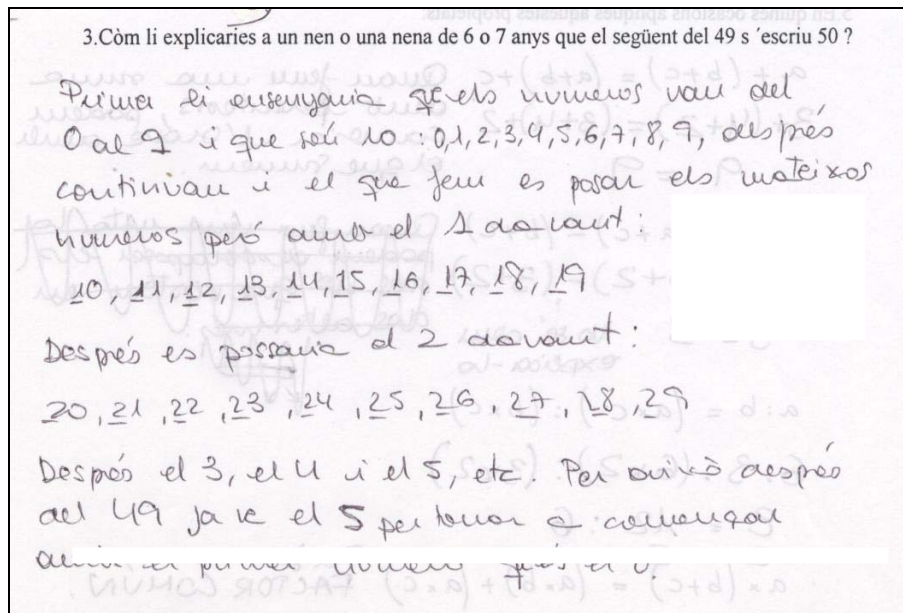 3.Còm li explicaries a un nen o una nena de 6 o 7 anys que el següent del 49 s ´escriu 50 ?
Primer li ensenyaria que els números van del
0 al 9 i que són 10 : 0,1,2,3,4,5,6,7,8,9, després
continuau i el que fem es posar els mateixos
números peró amb el 1 davant:
10, 11, 12, 13, 14, 15, 16, 17, 18, 19
Després es possaria el 2 davant:
20, 21, 22, 23, 24, 25, 26, 27, 28, 29
Després el 3, el 4 i el 5, etc. Per això després
del 49 ja ve el 5 per tornar a començar